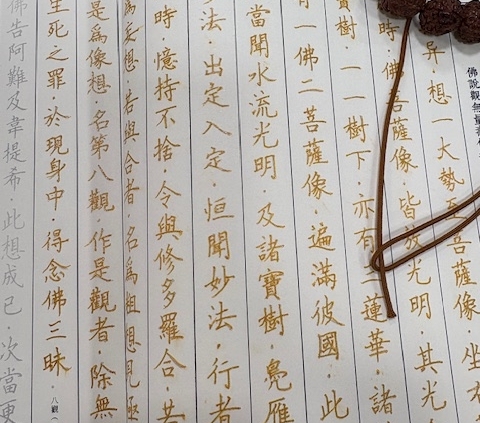 佛說觀無量壽
异·想一大勢至菩薩像·坐右
時·佛菩薩像·皆放光明·其光
寶樹·一一樹下·亦有三蓮華·諸
有一佛二菩薩像·遍滿彼國·此
當聞水流光明·及諸寶樹·鳧雁
法·出定入定·恒聞妙法·行者
時·憶持不捨·令與修多羅合·若
為妄想·若與合者·名為粗想見極
是為像想·名第八觀·作是觀者·除無
生死之罪·於現身中·得念佛三昧·八觀
佛告阿難及韋提希·此想成已·次當更